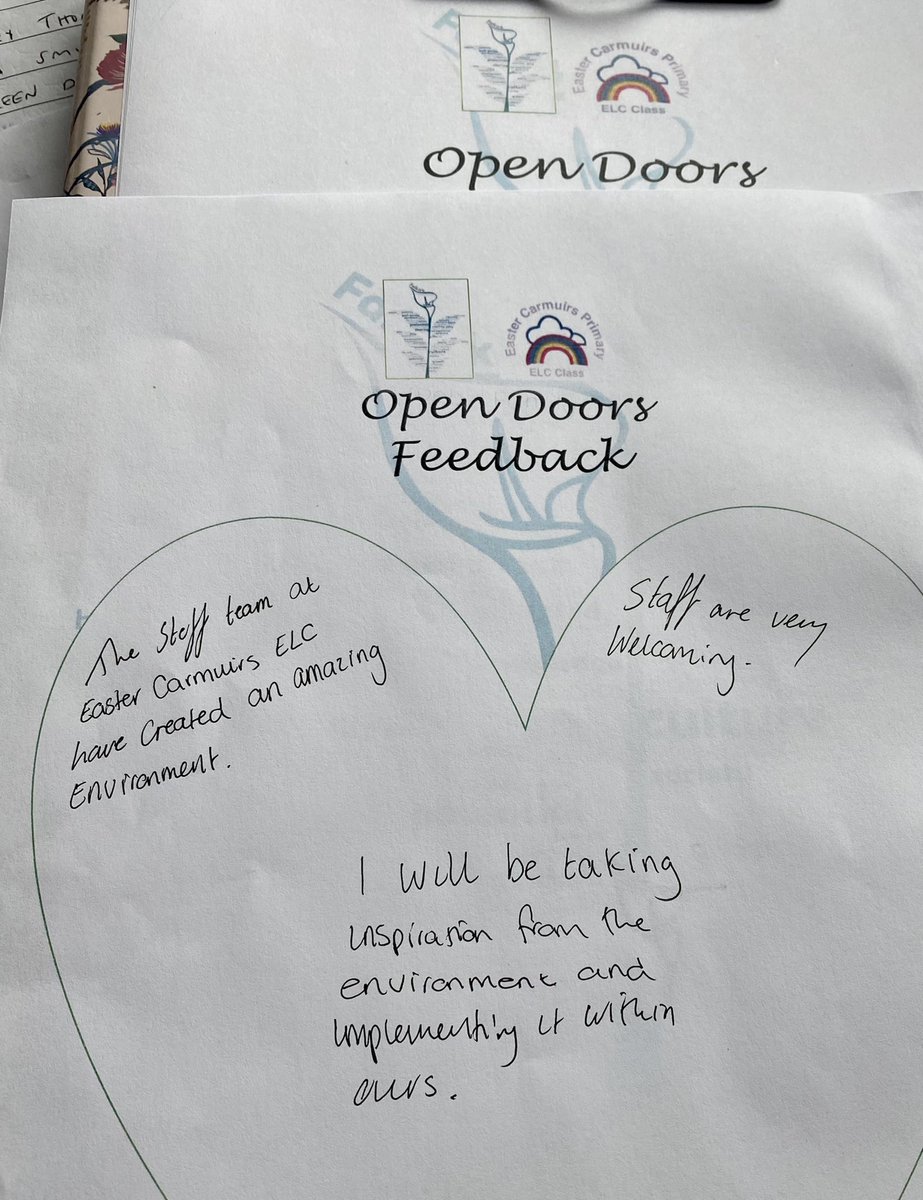 Y THO
SMI
EEN D
Easter Carmuirs Primary
ELC Class
Open Doors
Easter Carmuirs Primary
ELC Class
Open Doors
Feedback
The Staff team at
Easter Carmuirs ELC
have created an amazing
Environment.
Staff are very
Welcoming.
I will be taking
inspiration from the
environment and
implementing it within
ours.